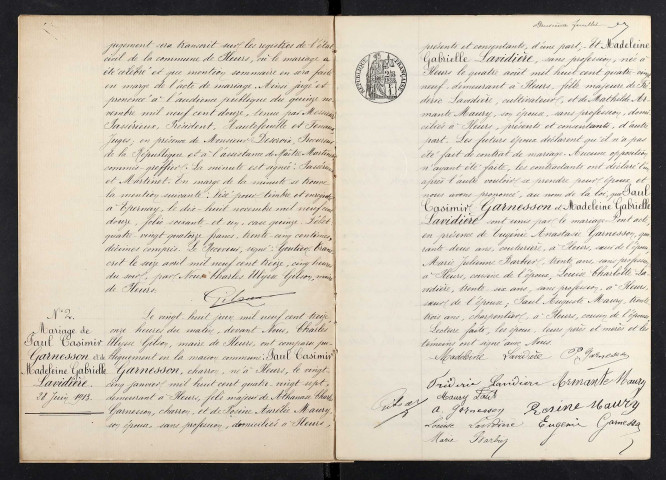 jugement sera transcrit sur les registres de l'état
civil de la commune de Fleurs, où le mariage a
été célébré et que mention sommaire en sera faite
en marge de l'acte de mariage. Ainsi jugé et
prononcé à l'audience publique du quinze no
vembre mil neuf cent douze, tenue par Messieurs
Président, Hautefeuille et
Juges, en présence de Monsieur Procureur
de la République et à l'assistance de Maître Martinet
commis greffier. La minute est signée:
et Martinet. En marge de la minute se trouve
la mention suivante: Visé pour timbre et enregistré
à Epernay, le dix huit novembre mil neuf cent
douze, folio soixante et un, case quinze. Débet
quatre vingt quatorze francs, trente cinq centimes
décimes compris. Le Receveur, signé: Gautier. Trans
crit le seize août mil neuf cent treize, cinq heures
du soir, par Nous Charles Ulysse Gilson, maire
de Fleurs.
Gilson
N° 2.
Mariage de
Paul Casimir
Garnesson et de
Madeleine Gabrielle
Lavidière
28 Juin 1913.
Le vingt huit juin mil neuf cent treize
onze heures du matin, devant Nous, Charles
Ulysse Gilson, maire de Fleurs, ont comparu pu
bliquement en la maison commune: Paul Casimir
Garnesson, charron, né à Fleurs, le vingt
cinq janvier mil huit cent quatre vingt sept,
demeurant à Fleurs, fils majeur de Athanase
Garnesson, charron, et de Rosine Aurélie Maury,
son épouse, sans profession, domiciliés à Fleurs,
Deuxième feuillet
REPUBLIQUE FRANÇAISE
présents et consentants, d'une part. Et Madeleine
Gabrielle Lavidière, sans profession, née à
Fleurs le quatre août mil huit cent quatre vingt
neuf, demeurant à Fleurs, fille majeure de Fré
déric Lavidière, cultivateur, et de Mathilde Ar
mante Maury, son épouse, sans profession, domi
ciliés à Fleurs, présents et consentants, d'autre
part. Les futurs époux déclarent qu'il n'a pas
été fait de contrat de mariage. Aucune opposition
n'ayant été faite, les contractants ont déclaré l'un
après l'autre vouloir se prendre pour époux, et
nous avons prononcé, au nom de la loi, que Paul
Casimir Garnesson et Madeleine Gabrielle
Lavidière sont unis par le mariage. Dont acte,
en présence de Eugène Anastase Garnesson, qua
rante deux ans, à Fleurs, de l'époux,
Marie Julienne Barbier, trente ans, sans profession,
à Fleurs, cousine de l'époux, Louise Charlotte La
vidière, trente six ans, sans profession, à Fleurs,
sœur de l'épouse, Paul Auguste Maury, trente
trois ans, charpentier à Fleurs, cousin de l'épouse.
Lecture faite, les époux, leurs pères et mères et les
témoins ont signé avec Nous.
Madeleine Lavidière P. Garnesson
Fréderic Lavidière Armante Maury
Maury Paul
A Garnesson Rosine Maury
Louise Lavidière Eugène Garnesson
Marie Barbier